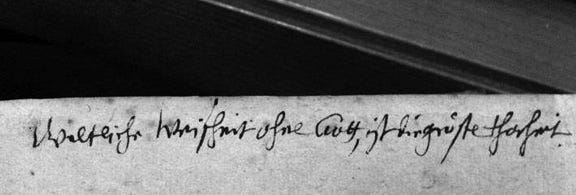 Weltliche Weisheit ohne Gott, ist die gröste Thorheit.